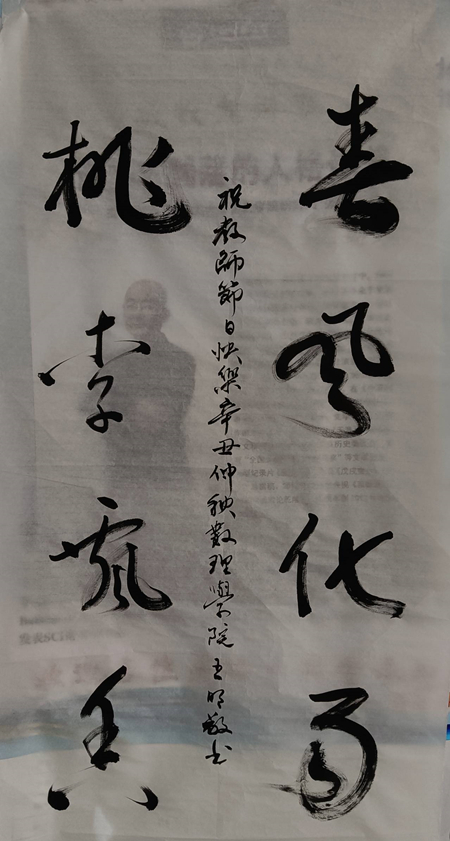 春風化雨
桃李飄香
祝教師節日快樂辛丑仲秋數理學院王明敬书